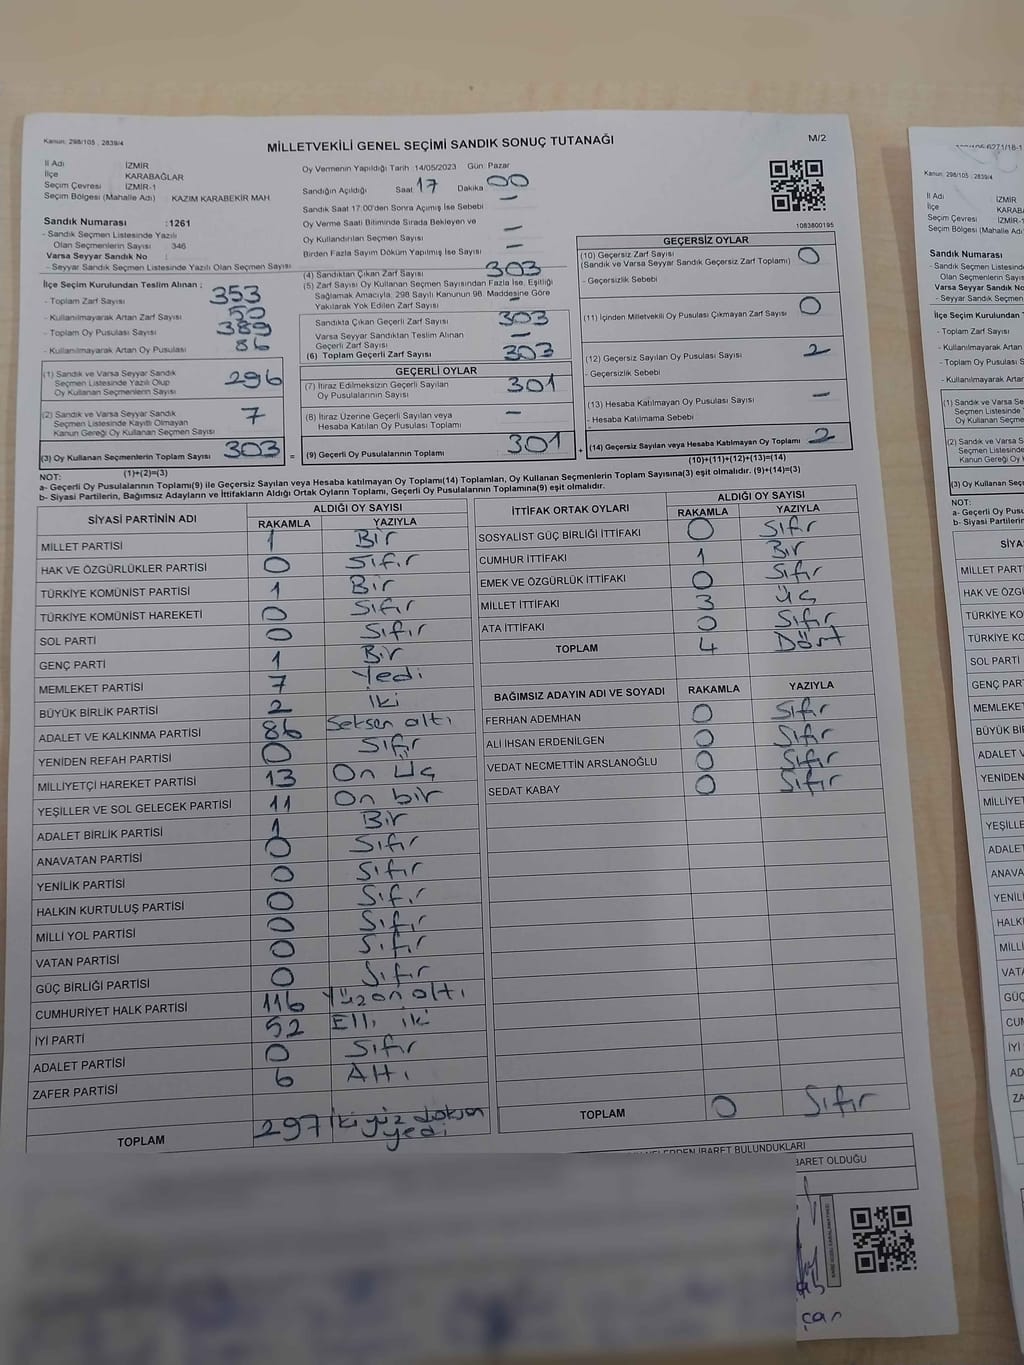 Kanun: 298/105 ; 2839/4
MİLLETVEKİLİ GENEL SEÇİMİ SANDIK SONUÇ TUTANAĞI
M/2
İl Adı : İZMİR
İlçe : KARABAĞLAR
Seçim Çevresi : İZMİR-1
Seçim Bölgesi (Mahalle Adı) : KAZIM KARABEKİR MAH
Sandık Numarası :1261
- Sandık Seçmen Listesinde Yazılı
Olan Seçmenlerin Sayısı 346
Varsa Seyyar Sandık No :
- Seyyar Sandık Seçmen Listesinde Yazılı Olan Seçmen Sayısı
İlçe Seçim Kurulundan Teslim Alınan ;
- Toplam Zarf Sayısı 353
- Kullanılmayarak Artan Zarf Sayısı 50
- Toplam Oy Pusulası Sayısı 389
- Kullanılmayarak Artan Oy Pusulası 86
(1) Sandık ve Varsa Seyyar Sandık
Seçmen Listesinde Yazılı Olup
Oy Kullanan Seçmenlerin Sayısı 296
(2) Sandık ve Varsa Seyyar Sandık
Seçmen Listesinde Kayıtlı Olmayan
Kanun Gereği Oy Kullanan Seçmen Sayısı 7
(3) Oy Kullanan Seçmenlerin Toplam Sayısı 303
(1)+(2)=(3)
Oy Vermenin Yapıldığı Tarih :14/05/2023 Gün: Pazar
Sandığın Açıldığı Saat 17 Dakika 00
Sandık Saat 17:00'den Sonra Açılmış İse Sebebi : —
Oy Verme Saati Bitiminde Sırada Bekleyen ve
Oy Kullandırılan Seçmen Sayısı —
Birden Fazla Sayım Döküm Yapılmış İse Sayısı —
(4) Sandıktan Çıkan Zarf Sayısı 303
(5) Zarf Sayısı Oy Kullanan Seçmen Sayısından Fazla İse, Eşitliği
Sağlamak Amacıyla, 298 Sayılı Kanunun 98. Maddesine Göre
Yakılarak Yok Edilen Zarf Sayısı —
Sandıkta Çıkan Geçerli Zarf Sayısı 303
Varsa Seyyar Sandıktan Teslim Alınan
Geçerli Zarf Sayısı —
(6) Toplam Geçerli Zarf Sayısı 303
GEÇERLİ OYLAR
(7) İtiraz Edilmeksizin Geçerli Sayılan
Oy Pusulalarının Sayısı 301
(8) İtiraz Üzerine Geçerli Sayılan veya
Hesaba Katılan Oy Pusulası Toplamı —
= (9) Geçerli Oy Pusulalarının Toplamı 301
1083800195
GEÇERSİZ OYLAR
(10) Geçersiz Zarf Sayısı
(Sandık ve Varsa Seyyar Sandık Geçersiz Zarf Toplamı) 0
- Geçersizlik Sebebi
(11) İçinden Milletvekili Oy Pusulası Çıkmayan Zarf Sayısı 0
(12) Geçersiz Sayılan Oy Pusulası Sayısı 2
- Geçersizlik Sebebi
(13) Hesaba Katılmayan Oy Pusulası Sayısı —
- Hesaba Katılmama Sebebi
+ (14) Geçersiz Sayılan veya Hesaba Katılmayan Oy Toplamı 2
(10)+(11)+(12)+(13)=(14)
NOT:
a- Geçerli Oy Pusulalarının Toplamı(9) ile Geçersiz Sayılan veya Hesaba katılmayan Oy Toplamı(14) Toplamları, Oy Kullanan Seçmenlerin Toplam Sayısına(3) eşit olmalıdır. (9)+(14)=(3)
b- Siyasi Partilerin, Bağımsız Adayların ve İttifakların Aldığı Ortak Oyların Toplamı, Geçerli Oy Pusulalarının Toplamına(9) eşit olmalıdır.
SİYASİ PARTİNİN ADI ALDIĞI OY SAYISI
RAKAMLA YAZIYLA
MİLLET PARTİSİ 1 Bir
HAK VE ÖZGÜRLÜKLER PARTİSİ 0 Sıfır
TÜRKİYE KOMÜNİST PARTİSİ 1 Bir
TÜRKİYE KOMÜNİST HAREKETİ 0 Sıfır
SOL PARTİ 0 Sıfır
GENÇ PARTİ 1 Bir
MEMLEKET PARTİSİ 7 Yedi
BÜYÜK BİRLİK PARTİSİ 2 iki
ADALET VE KALKINMA PARTİSİ 86 Seksen altı
YENİDEN REFAH PARTİSİ 0 Sıfır
MİLLİYETÇİ HAREKET PARTİSİ 13 On Üç
YEŞİLLER VE SOL GELECEK PARTİSİ 11 On bir
ADALET BİRLİK PARTİSİ 1 Bir
ANAVATAN PARTİSİ 0 Sıfır
YENİLİK PARTİSİ 0 Sıfır
HALKIN KURTULUŞ PARTİSİ 0 Sıfır
MİLLİ YOL PARTİSİ 0 Sıfır
VATAN PARTİSİ 0 Sıfır
GÜÇ BİRLİĞİ PARTİSİ 0 Sıfır
CUMHURİYET HALK PARTİSİ 116 Yüz on altı
İYİ PARTİ 52 Elli iki
ADALET PARTİSİ 0 Sıfır
ZAFER PARTİSİ 6 Altı
TOPLAM 297 iki yüz doksan
yedi
İTTİFAK ORTAK OYLARI ALDIĞI OY SAYISI
RAKAMLA YAZIYLA
SOSYALİST GÜÇ BİRLİĞİ İTTİFAKI 0 Sıfır
CUMHUR İTTİFAKI 1 Bir
EMEK VE ÖZGÜRLÜK İTTİFAKI 0 Sıfır
MİLLET İTTİFAKI 3 üç
ATA İTTİFAKI 0 Sıfır
TOPLAM 4 Dört
BAĞIMSIZ ADAYIN ADI VE SOYADI RAKAMLA YAZIYLA
FERHAN ADEMHAN 0 Sıfır
ALİ İHSAN ERDENİLGEN 0 Sıfır
VEDAT NECMETTİN ARSLANOĞLU 0 Sıfır
SEDAT KABAY 0 Sıfır
TOPLAM 0 Sıfır
İBARET BULUNDUKLARI
BARET OLDUĞU
çan
6271/18-1
Kanun: 298/105 ; 2839/4
İl Adı : İZMİR
İlçe : KARABA
Seçim Çevresi : İZMİR-
Seçim Bölgesi (Mahalle Adı)
Sandık Numarası
- Sandık Seçmen Listesind
Olan Seçmenlerin Sayısı
Varsa Seyyar Sandık No
- Seyyar Sandık Seçmen Lis
İlçe Seçim Kurulundan Tes
- Toplam Zarf Sayısı
- Kullanılmayarak Artan
- Toplam Oy Pusulası S
- Kullanılmayarak Arta
(1) Sandık ve Varsa S
Seçmen Listesinde
Oy Kullanan Seçm
(2) Sandık ve Varsa S
Seçmen Listesinde
Kanun Gereği Oy K
(3) Oy Kullanan Seçm
NOT:
a- Geçerli Oy Pusu
b- Siyasi Partilerin
SİYA
MİLLET PART
HAK VE ÖZGÜ
TÜRKİYE KO
TÜRKİYE KO
SOL PARTİ
GENÇ PAR
MEMLEKET
BÜYÜK Bİ
ADALET V
YENİDEN
MİLLİYET
YEŞİLLE
ADALET
ANAVA
YENİL
HALK
MİLLİ
VATA
GÜÇ
CUM
İYİ
AD
ZA